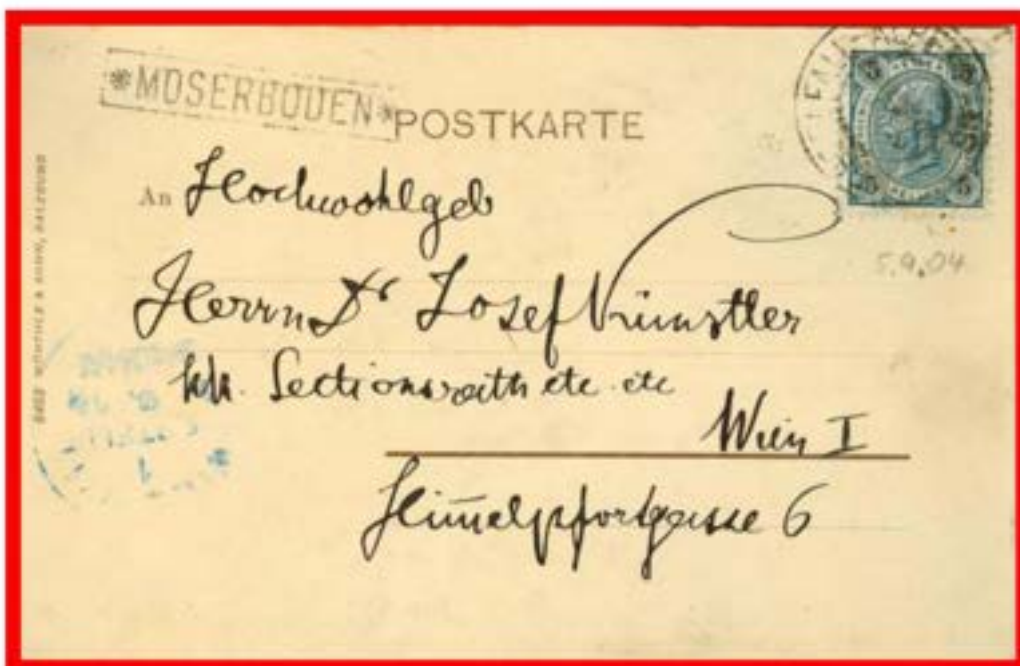 *MOSERBODEN*
POSTKARTE
An Hochwohlgeb
Herrn Dr Josef Künstler
kk. Sectionsrath etc etc
Wien I
Himmelpfortgasse 6
5.9.04
5 5
5 5
WÜRTHLE & SOHN, SALZBURG